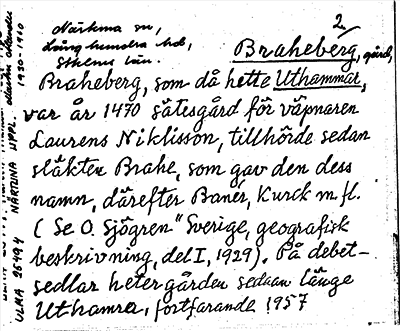 Närtuna sn,
Långhundra hd,
Sthlms län.
2
Braheberg, gård,
Braheberg, som då hette Uthammar,
var år 1470 sätesgård för väpnaren
Laurens Niklisson, tillhörde sedan
släkten Brahe, som gav den dess
namn, därefter Banér, Kurck m.fl.
( Se O. Sjögren "Sverige, geografisk
beskrivning, del I, 1929). På debet-
sedlar heter gården sedan länge
Uthamra, fortfarande 1957
ULMA 25494 NÄRTUNA UPPL.
1930-1910